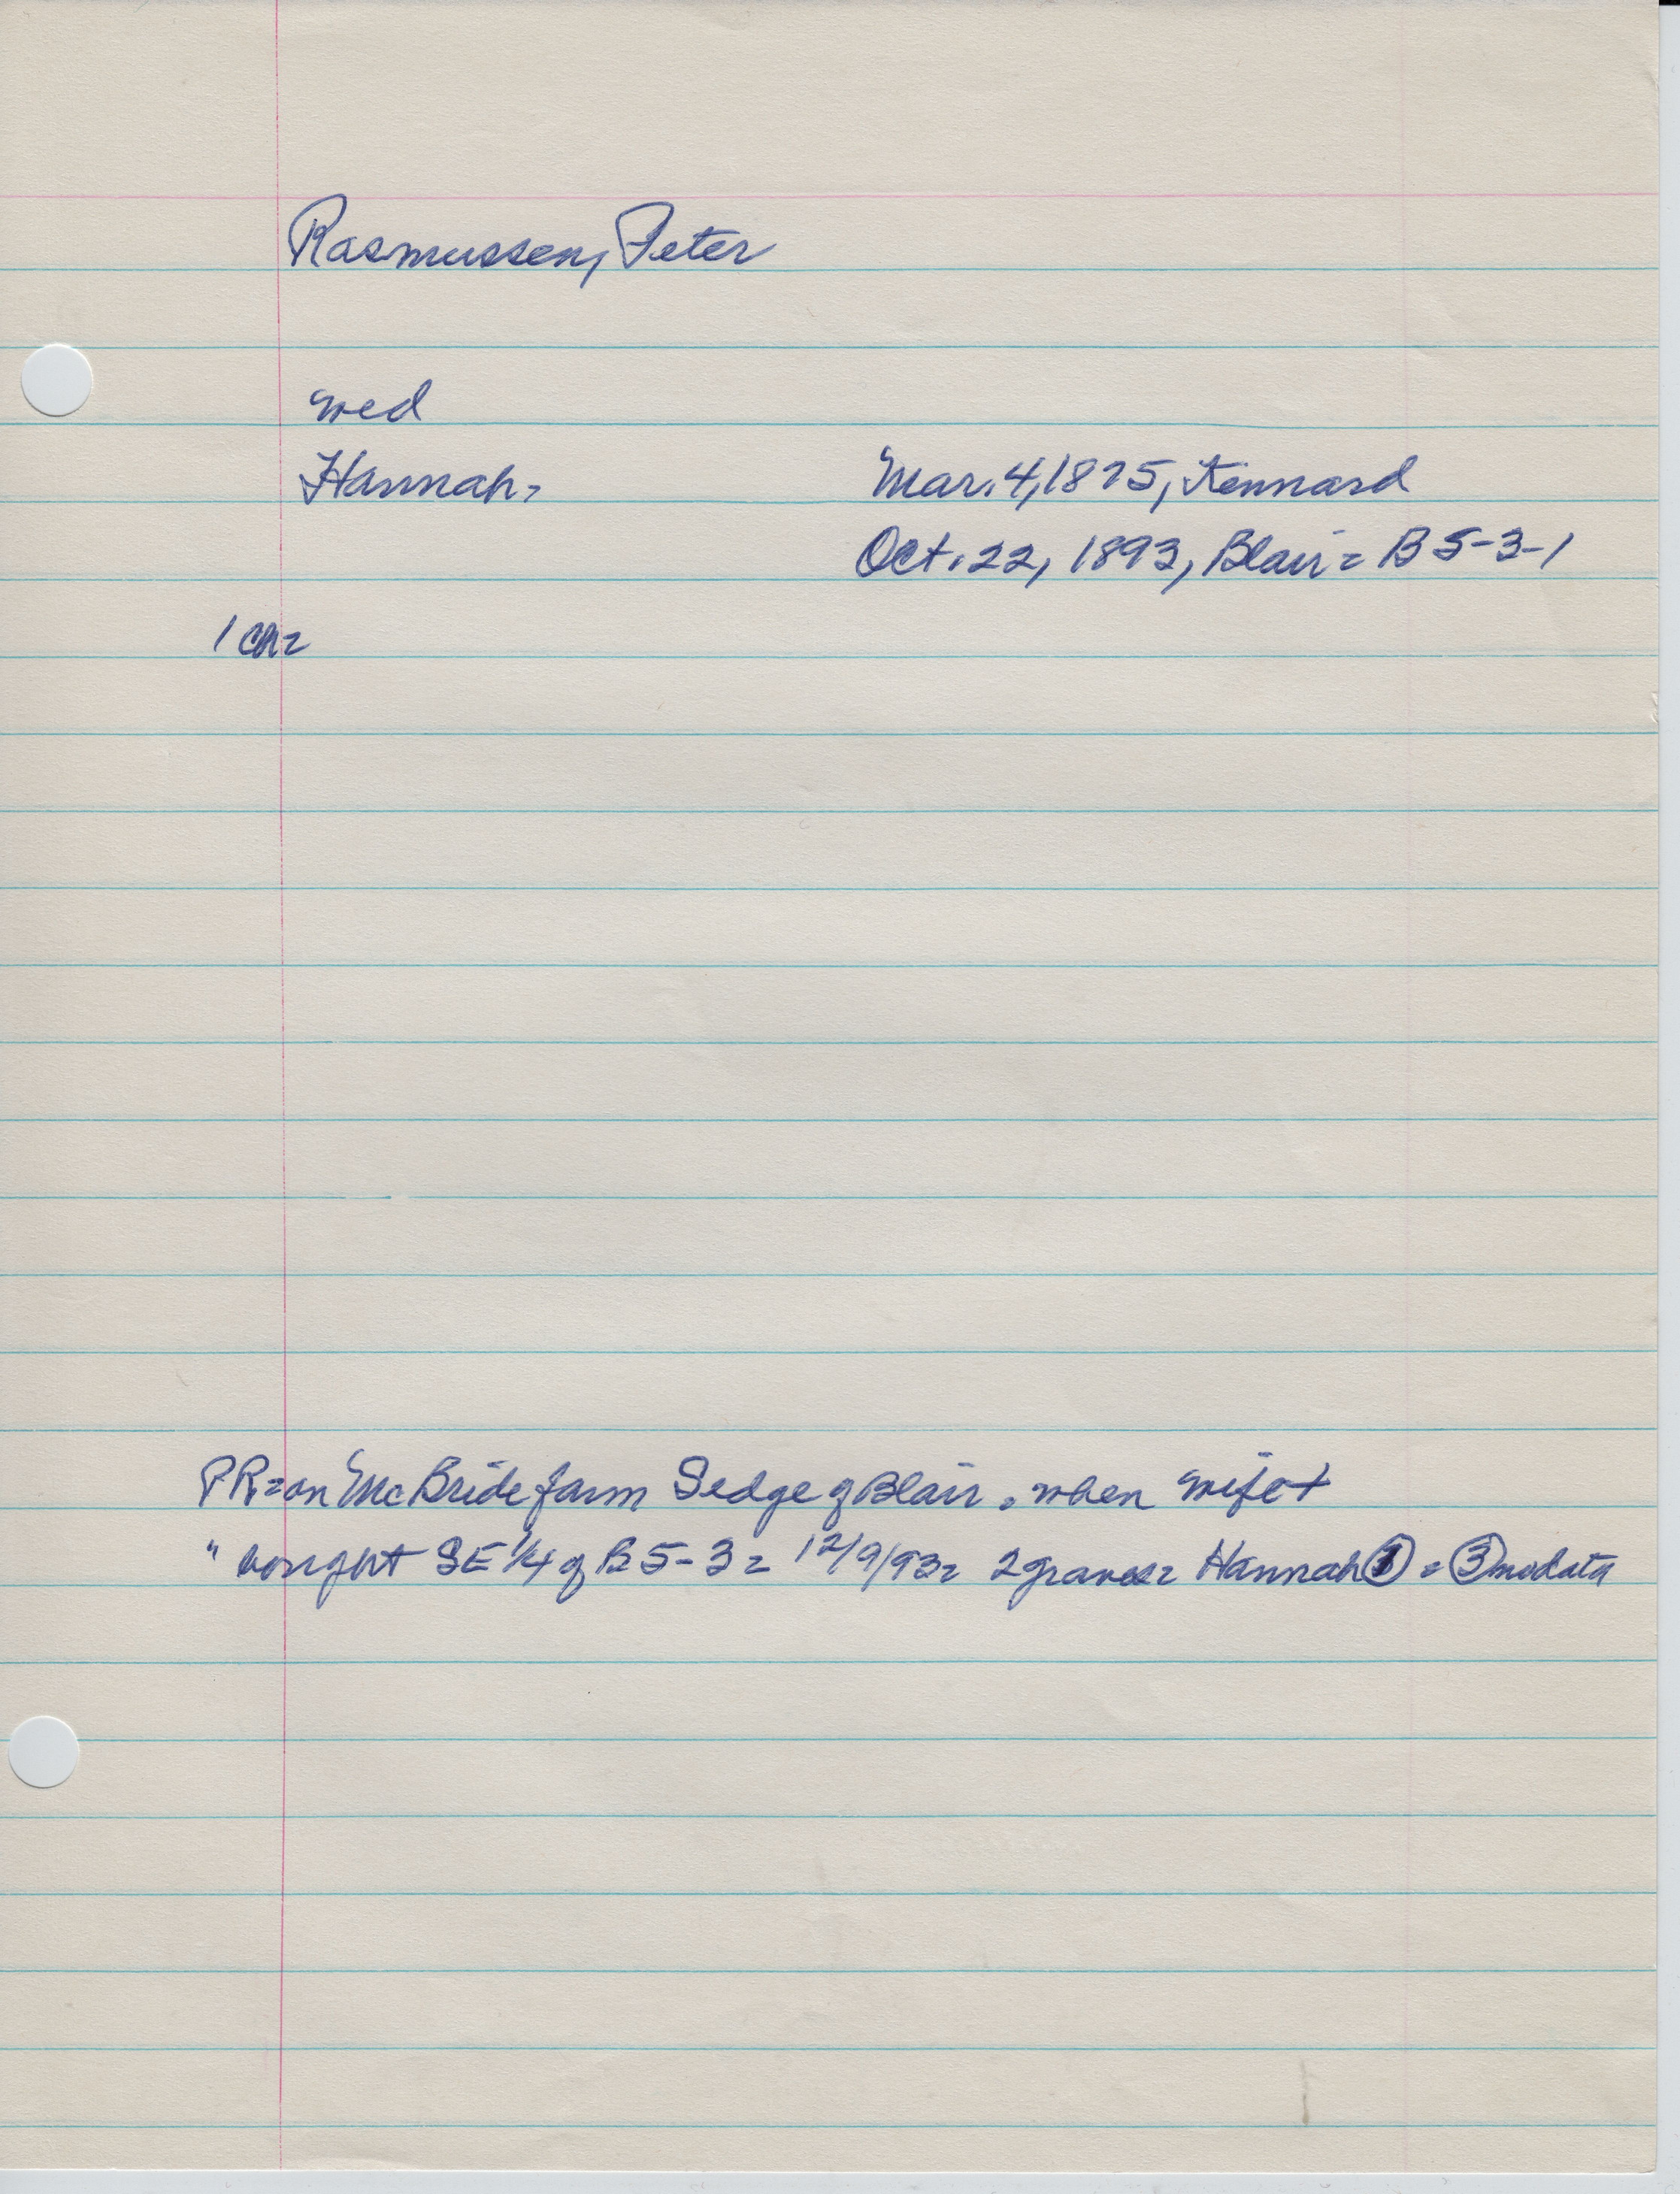 Rasmussen, Peter
wed
Hannah, Mar. 4, 1875, Kennard
Oct. 22, 1893, Blair = B 5-3-1
1 ch =
PR = on McBride farm S edge of Blair = when wife +
" bought SE 1/4 of B 5-3 = 12/9/93 = 2 graves = Hannah ① = ③ no data